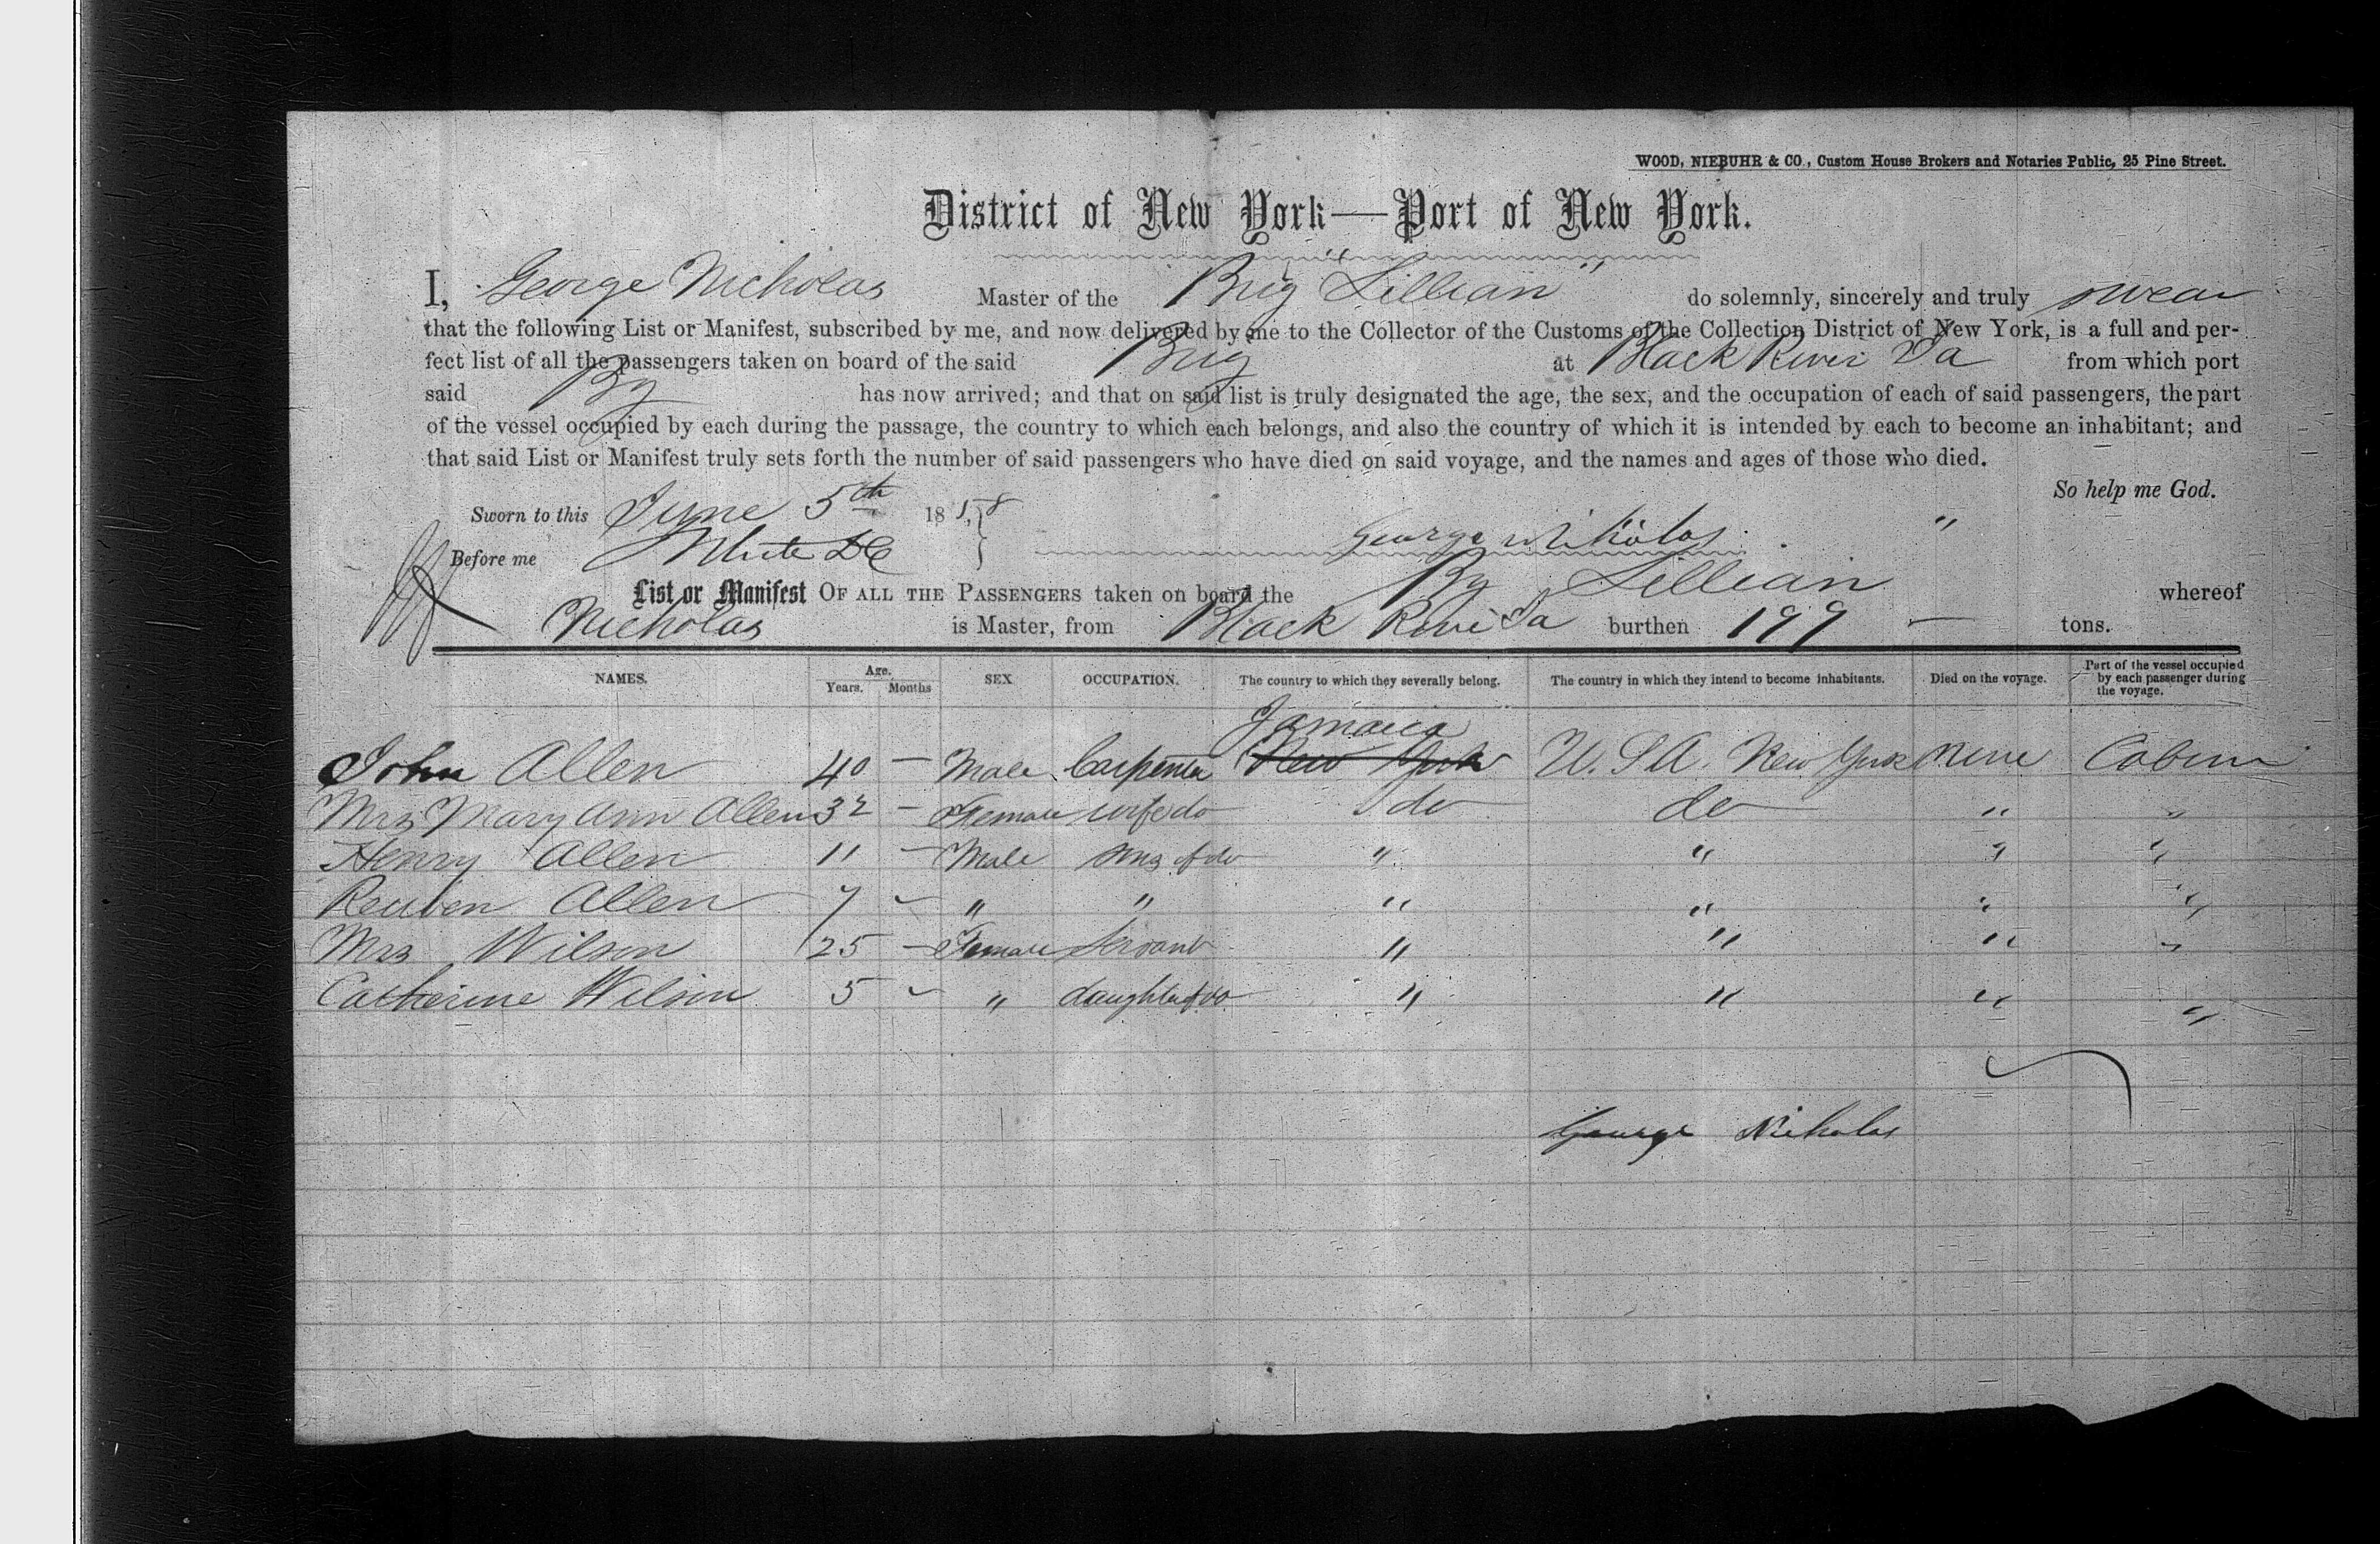 WOOD, NIEBUHR & CO., Custom House Brokers and Notaries Public, 25 Pine Street.
District of New York—Port of New York.
I, George Nicholas Master of the Brig "Lillian" do solemnly, sincerely and truly swear
that the following List or Manifest, subscribed by me, and now delivered by me to the Collector of the Customs of the Collection District of New York, is a full and per-
fect list of all the passengers taken on board of the said Brig at Black River Ja from which port
said Bg has now arrived; and that on said list is truly designated the age, the sex, and the occupation of each of said passengers, the part
of the vessel occupied by each during the passage, the country to which each belongs, and also the country of which it is intended by each to become an inhabitant; and
that said List or Manifest truly sets forth the number of said passengers who have died on said voyage, and the names and ages of those who died.
So help me God.
Sworn to this June 5th 18
Before me George Nicholas
List or Manifest OF ALL THE PASSENGERS taken on board the Bg Lillian whereof
Nicholas is Master, from Black River Ja burthen 199 — tons.
NAMES. Age. Years. Months SEX OCCUPATION. The country to which they severally belong. The country in which they intend to become inhabitants. Died on the voyage. Part of the vessel occupied by each passenger during the voyage.
Jamaica
John Allen 40 — Male Carpenter New York U. S A. New York None Cabin
Mrs Mary Ann Allen 32 — Female wife do do do " "
Henry Allen 11 — Male sons of do " " " "
Reuben Allen 7 " " " " " "
Mrs Wilson 25 — Female Servant " " " "
Catherine Wilson 5 " daughter of do " " " "
George Nicholas